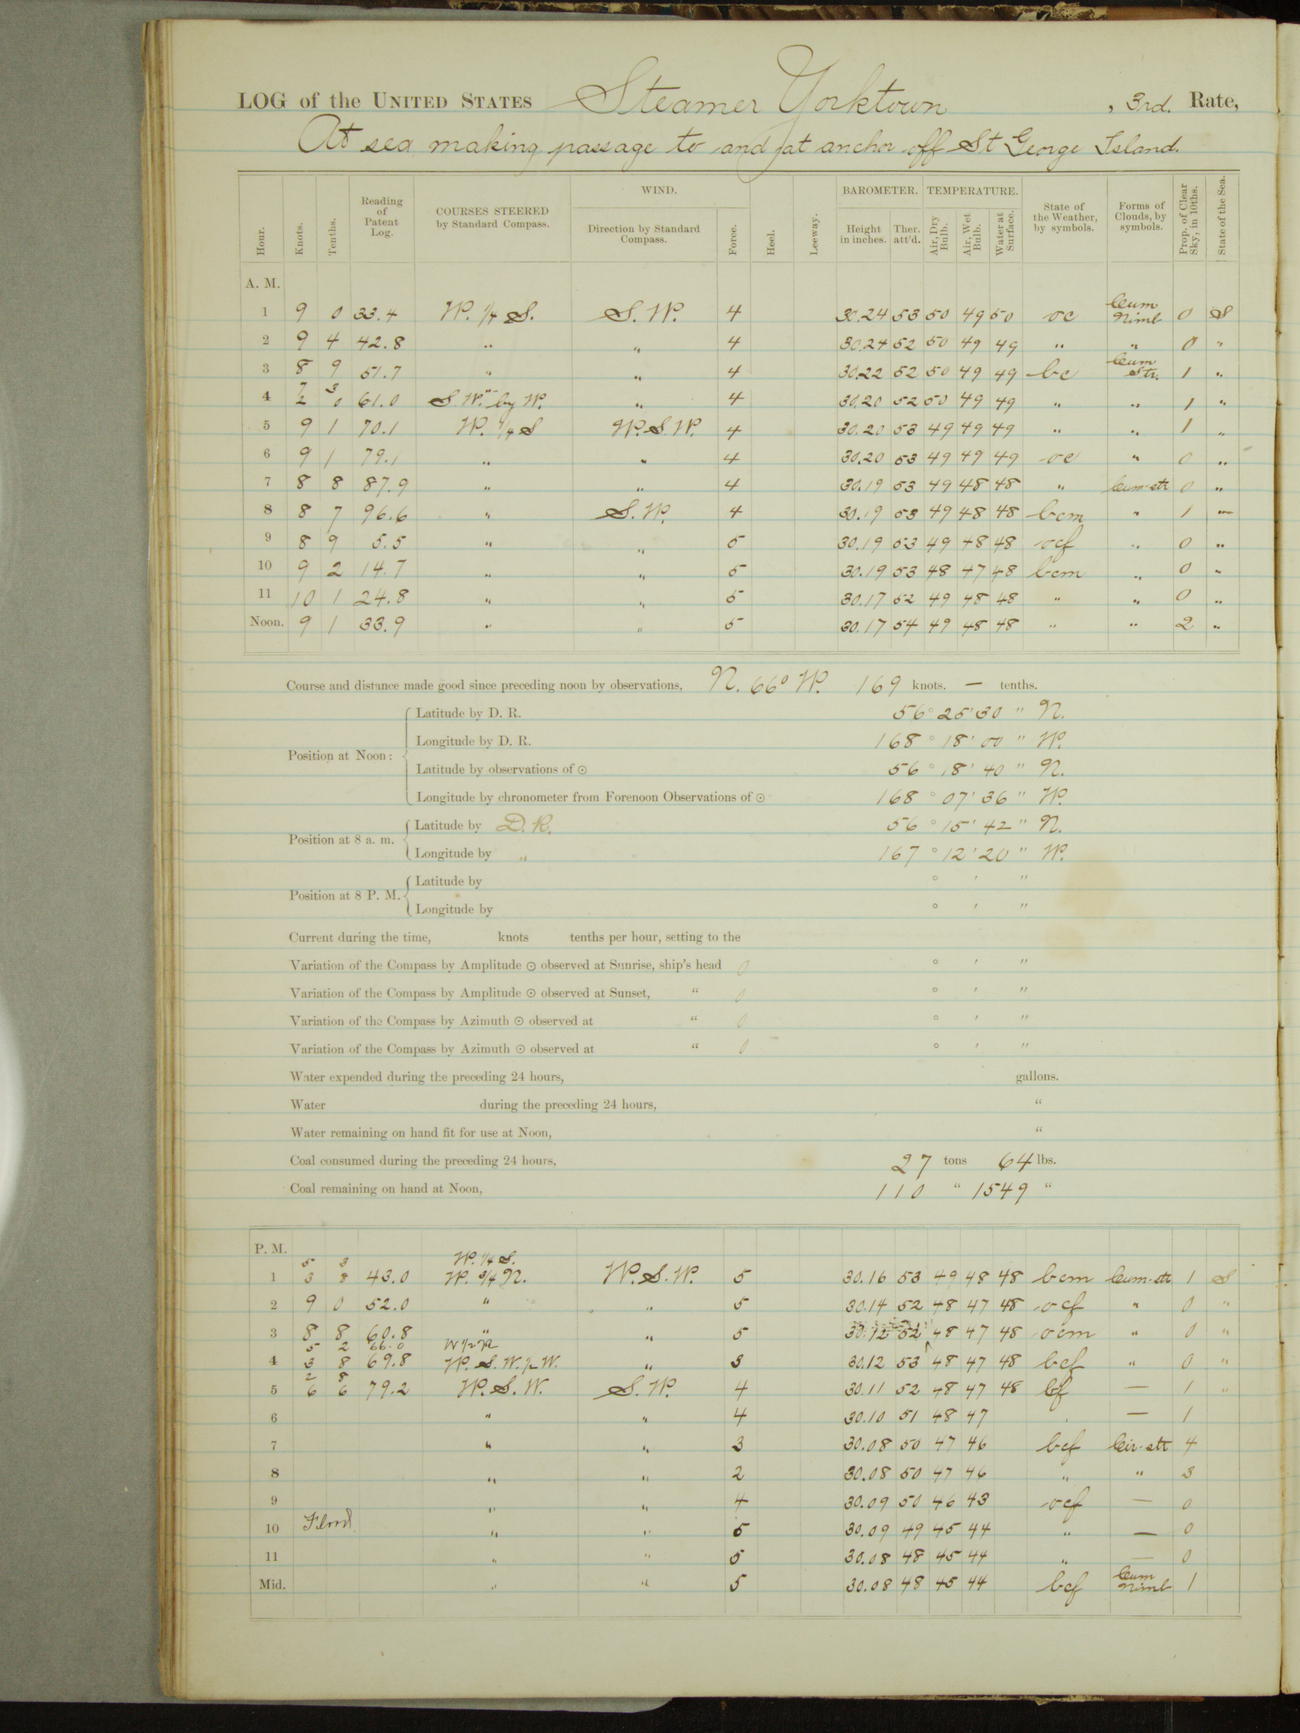 LOG of the UNITED STATES Steamer Yorktown, 3rd. Rate,
At sea making passage to and at anchor off St George Island.
Hour. Knots. Tenths. Reading of Patent Log. COURSES STEERED by Standard Compass. WIND. Direction by Standard Compass. Force. Heel. Leeway. BAROMETER. Height in inches. Ther. att'd. TEMPERATURE. Air, Dry Bulb. Air, Wet Bulb. Water at Surface. State of the Weather, by symbols. Forms of Clouds, by symbols. Prop. of Clear Sky, in 10ths. State of the Sea.
A. M.
1 9 0 33.4 W. 1/4 S. S. W. 4 30.24 53 50 49 50 oc Cum Nimb 0 S
2 9 4 42.8 " " 4 30.24 52 50 49 49 " " 0 "
3 8 9 51.7 " " 4 30.22 52 50 49 49 bc Cum Str. 1 "
4 7 3 2 0 61.0 " S. W. by W. " 4 30.20 52 50 49 49 " " 1 "
5 9 1 70.1 W. 1/4 S W. S. W. 4 30.20 53 49 49 49 " " 1 "
6 9 1 79.1 " " 4 30.20 53 49 49 49 oc " 0 "
7 8 8 87.9 " " 4 30.19 53 49 48 48 " Cum-str 0 "
8 8 7 96.6 " S. W. 4 30.19 53 49 48 48 bcm " 1 "
9 8 9 5.5 " " 5 30.19 53 49 48 48 ocf " 0 "
10 9 2 14.7 " " 5 30.19 53 48 47 48 bcm " 0 "
11 10 1 24.8 " " 5 30.17 52 49 48 48 " " 0 "
Noon. 9 1 33.9 " " 5 30.17 54 49 48 48 " " 2 "
Course and distance made good since preceding noon by observations, N. 66° W. 169 knots. — tenths.
Position at Noon:
Latitude by D. R. 56° 25' 30" N.
Longitude by D. R. 168° 18' 00" W.
Latitude by observations of ☉ 56° 18' 40" N.
Longitude by chronometer from Forenoon Observations of ☉ 168° 07' 36" W.
Position at 8 a. m.
Latitude by D. R. 56° 15' 42" N.
Longitude by " 167° 12' 20" W.
Position at 8 P. M.
Latitude by ° ' "
Longitude by ° ' "
Current during the time, knots tenths per hour, setting to the
Variation of the Compass by Amplitude ☉ observed at Sunrise, ship's head 0 ° ' "
Variation of the Compass by Amplitude ☉ observed at Sunset, " 0 ° ' "
Variation of the Compass by Azimuth ☉ observed at " 0 ° ' "
Variation of the Compass by Azimuth ☉ observed at " 0 ° ' "
Water expended during the preceding 24 hours, gallons.
Water during the preceding 24 hours, "
Water remaining on hand fit for use at Noon, "
Coal consumed during the preceding 24 hours, 27 tons 64 lbs.
Coal remaining on hand at Noon, 110 " 1549 "
P. M.
5 3 W. 1/4 S.
1 3 8 43.0 W. 3/4 N. W. S. W. 5 30.16 53 49 48 48 bcm Cum-str 1 S
2 9 0 52.0 " " 5 30.14 52 48 47 48 ocf " 0 "
3 8 8 60.8 " " 5 30.12 52 48 47 48 ocm " 0 "
5 2 66.0
4 3 8 69.8 W. S. W. 1/2 W. " 3 30.12 53 48 47 48 bcf " 0 "
2 8
5 6 6 79.2 W. S. W. S. W. 4 30.11 52 48 47 48 bf — 1 "
6 " " 4 30.10 51 48 47 — 1
7 " " 3 30.08 50 47 46 bcf Cir-str 4
8 " " 2 30.08 50 47 46 " " 3
9 " " 4 30.09 50 46 43 ocf — 0
10 Flood " " 5 30.09 49 45 44 " — 0
11 " " 5 30.08 48 45 44 " — 0
Mid. " " 5 30.08 48 45 44 bcf Cum Nimb 1